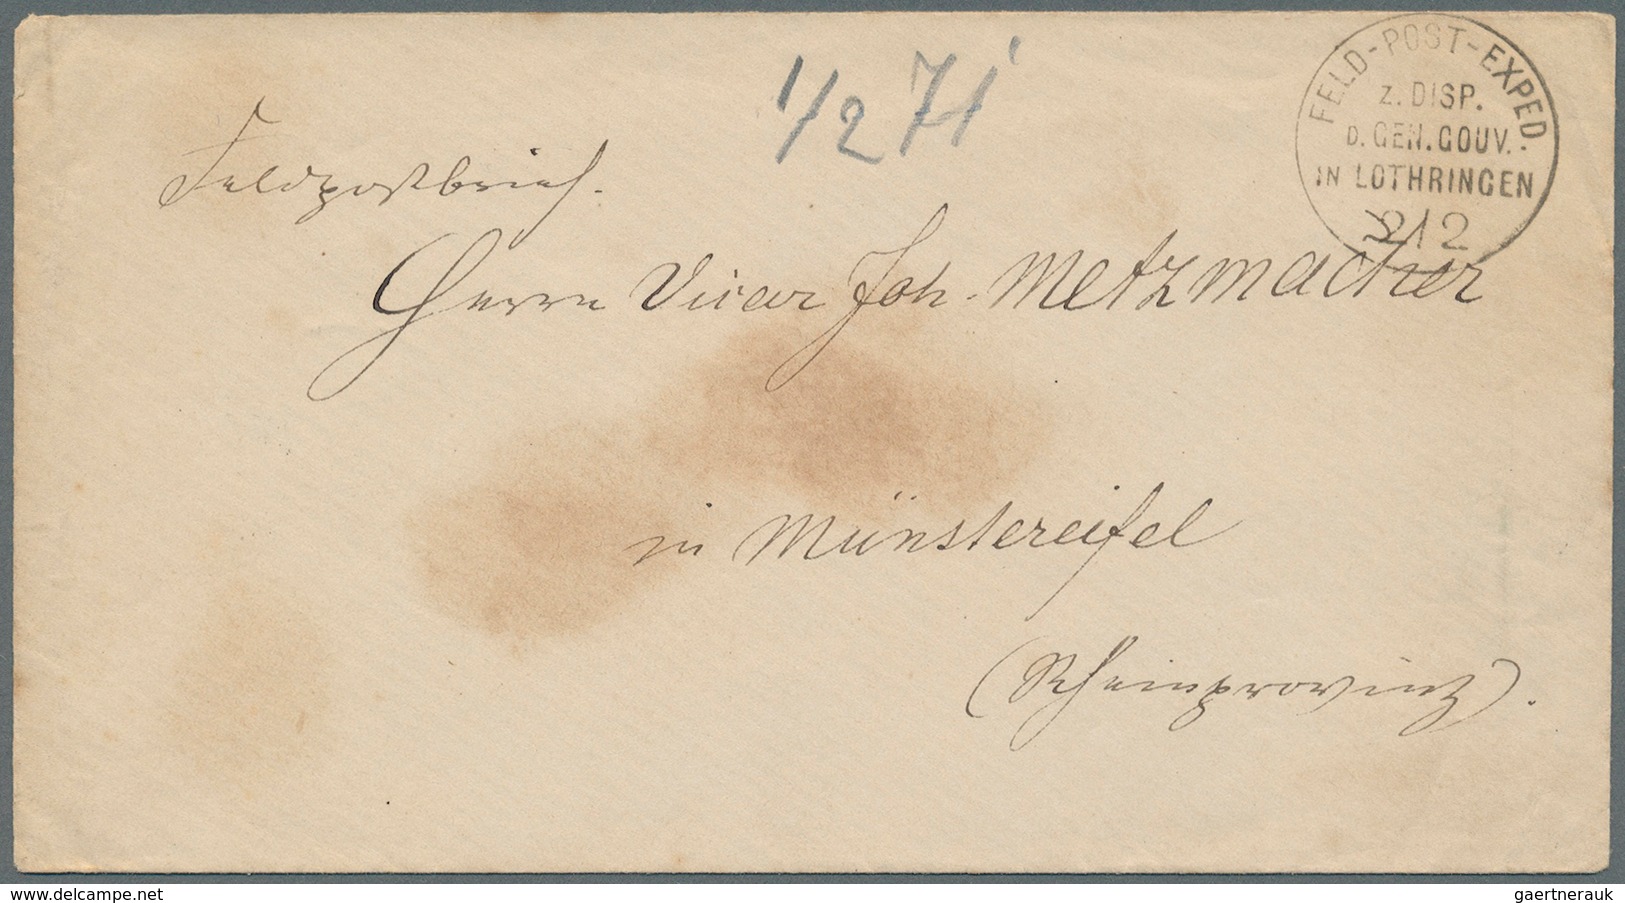 1/2 71
FELD-POST-EXPED.
Z. DISP.
D. GEN. GOUV.
IN LOTHRINGEN
2/2
Feldpostbrief.
Herrn Vicar Joh. Metzmacher
in Münstereifel
(Rheinprovinz).
www.delcampe.net
gaertnerauk